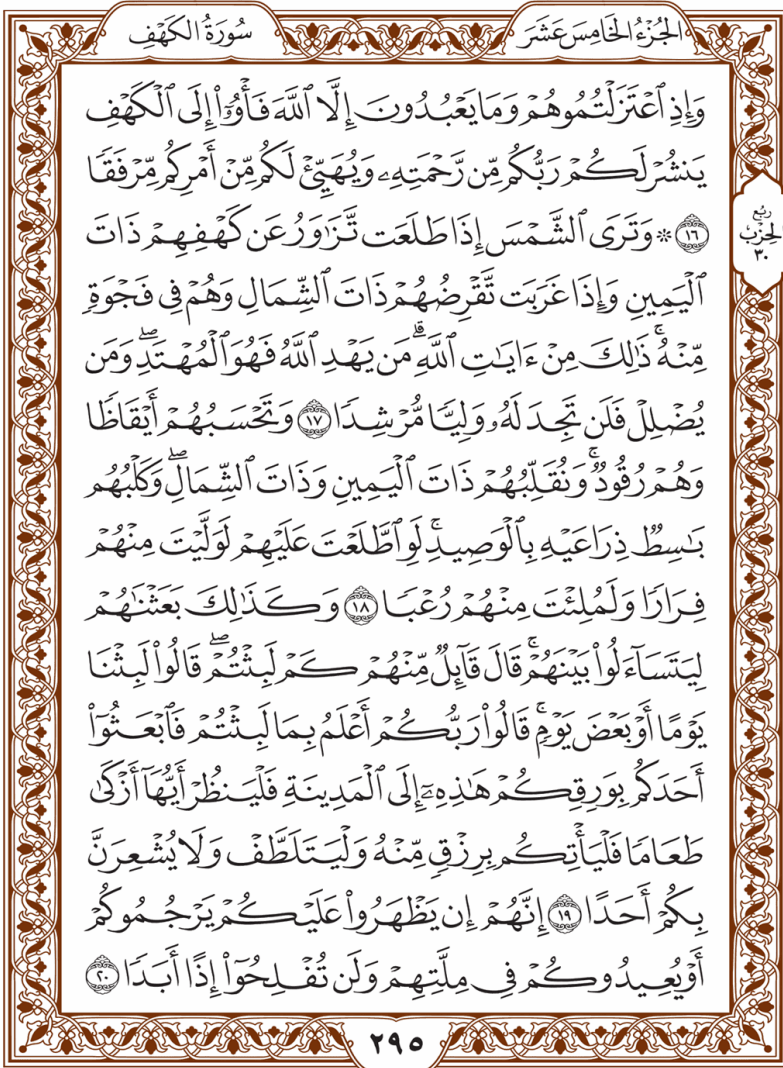 سُورَةُ الكَهۡفِ
الجُزۡءُ الخَامِسَ عَشَرَ
وَإِذِ ٱعۡتَزَلۡتُمُوهُمۡ وَمَا يَعۡبُدُونَ إِلَّا ٱللَّهَ فَأۡوُۥٓاْ إِلَى ٱلۡكَهۡفِ
يَنشُرۡ لَكُمۡ رَبُّكُم مِّن رَّحۡمَتِهِۦ وَيُهَيِّئۡ لَكُم مِّنۡ أَمۡرِكُم مِّرۡفَقٗا
١٦ ۞ وَتَرَى ٱلشَّمۡسَ إِذَا طَلَعَت تَّزَٰوَرُ عَن كَهۡفِهِمۡ ذَاتَ
ٱلۡيَمِينِ وَإِذَا غَرَبَت تَّقۡرِضُهُمۡ ذَاتَ ٱلشِّمَالِ وَهُمۡ فِي فَجۡوَةٖ
مِّنۡهُۚ ذَٰلِكَ مِنۡ ءَايَٰتِ ٱللَّهِۗ مَن يَهۡدِ ٱللَّهُ فَهُوَ ٱلۡمُهۡتَدِۖ وَمَن
يُضۡلِلۡ فَلَن تَجِدَ لَهُۥ وَلِيّٗا مُّرۡشِدٗا ١٧ وَتَحۡسَبُهُمۡ أَيۡقَاظٗا
وَهُمۡ رُقُودٞۚ وَنُقَلِّبُهُمۡ ذَاتَ ٱلۡيَمِينِ وَذَاتَ ٱلشِّمَالِۖ وَكَلۡبُهُم
بَٰسِطٞ ذِرَاعَيۡهِ بِٱلۡوَصِيدِۚ لَوِ ٱطَّلَعۡتَ عَلَيۡهِمۡ لَوَلَّيۡتَ مِنۡهُمۡ
فِرَارٗا وَلَمُلِئۡتَ مِنۡهُمۡ رُعۡبٗا ١٨ وَكَذَٰلِكَ بَعَثۡنَٰهُمۡ
لِيَتَسَآءَلُواْ بَيۡنَهُمۡۚ قَالَ قَآئِلٞ مِّنۡهُمۡ كَمۡ لَبِثۡتُمۡۖ قَالُواْ لَبِثۡنَا
يَوۡمًا أَوۡ بَعۡضَ يَوۡمٖۚ قَالُواْ رَبُّكُمۡ أَعۡلَمُ بِمَا لَبِثۡتُمۡ فَٱبۡعَثُوٓاْ
أَحَدَكُم بِوَرِقِكُمۡ هَٰذِهِۦٓ إِلَى ٱلۡمَدِينَةِ فَلۡيَنظُرۡ أَيُّهَآ أَزۡكَىٰ
طَعَامٗا فَلۡيَأۡتِكُم بِرِزۡقٖ مِّنۡهُ وَلۡيَتَلَطَّفۡ وَلَا يُشۡعِرَنَّ
بِكُمۡ أَحَدًا ١٩ إِنَّهُمۡ إِن يَظۡهَرُواْ عَلَيۡكُمۡ يَرۡجُمُوكُمۡ
أَوۡ يُعِيدُوكُمۡ فِي مِلَّتِهِمۡ وَلَن تُفۡلِحُوٓاْ إِذًا أَبَدٗا ٢٠
رُبۡع
الحِزۡبِ
٣٠
٢٩٥